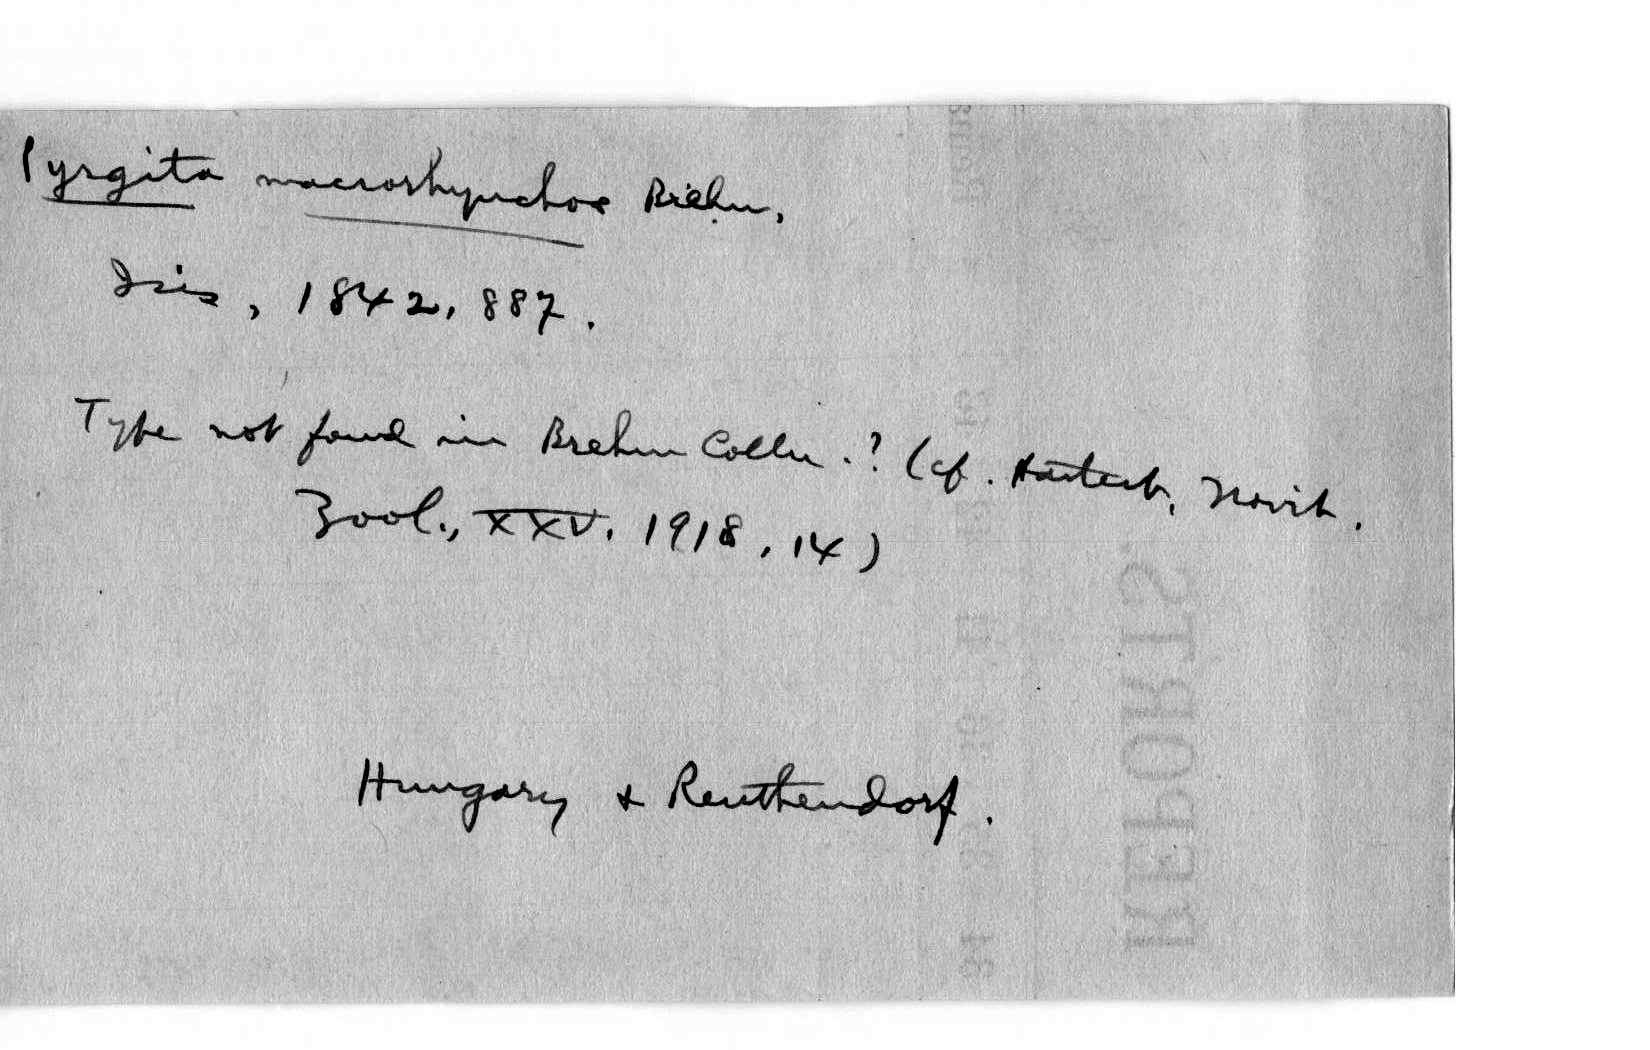 Pyrgita macrorhynchos Brehm,
Isis, 1842, 887.
Type not found in Brehm Colln.? (cf. Hartert, Novit.
Zool., XXV. 1918, 14)
Hungary & Renthendorf.
REPORTS